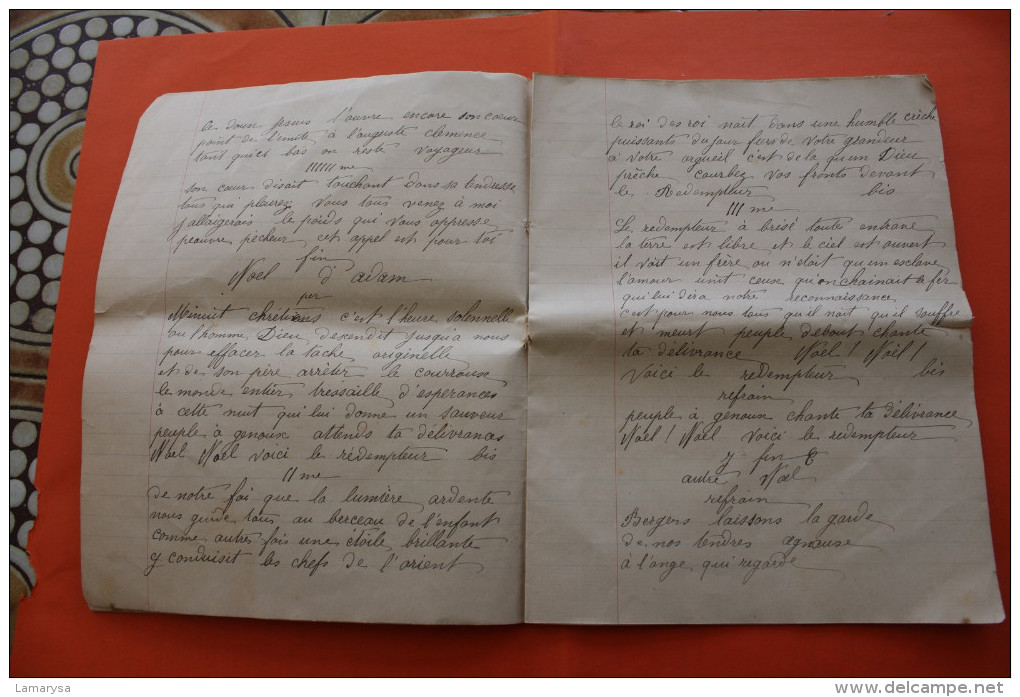 ce doux jesus l'ouvre encore son coeur
point de limite à l'auguste clemence
tant qu'ici bas on reste voyageur
IIIIII me
son coeur disait touchant dans sa tendresse
tous qui plaurez vous tous venez à moi
j'allaigerais le poids qui vous oppresse
peauvre pecheur cet appel est pour toi
fin
Noel d'adam
par
Minuit chretiens c'est l'heure solennelle
ou l'homme Dieu descendit jusqu'a nous
pour effacer la tache originelle
et de son père arrêter le courrouse
le monde entier tressaille d'esperances
à cette nuit qui lui donne un sauveur
peuple à genoux attends ta délivrances
Noel Noel voici le rédempteur bis
II me
de notre foi que la lumière ardente
nous guide tous au berceau de l'enfant
comme autre fois une étoile brillante
y conduisit les chefs de l'orient
le roi des roi nait dans une humble crèche
puissants du jour fiers de votre grandeur
à votre orgueil c'est de la qu'un Dieu
prêche courbez vos fronts devant
le Redempteur bis
III me
Le redempteur à brisé toute entrave
la terre est libre et le ciel est ouvert
il voit un frère ou n'était qu'un esclave
l'amour unit ceux qu'on chainait le fer
qui lui dira notre reconnaissance
c'est pour nous tous qu'il nait qu'il souffre
et meurt peuple debout chante
ta délivrance Noël! Noël!
Voici le redempteur bis
refrain
peuple à genoux chante ta délivrance
Noel! Noel voici le redempteur
fin
autre Noel
refrain
Bergers laissons la garde
de nos tendres agneuse
à l'ange qui regarde
Lamarysa
www.delcampe.net